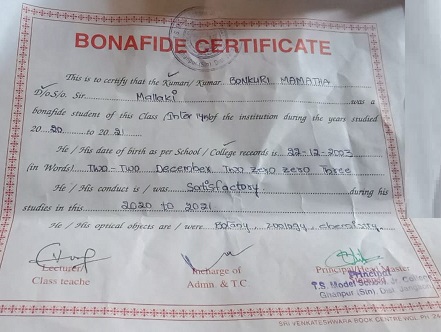 BONAFIDE CERTIFICATE
This is to certify that the Kumari / Kumar. BONKURI MAMATHA
D/o S/o. Sir. Mallaki was a
bonafide student of this Class (Inter 1yr) of the institution during the years studied
20 20 to 20 21
He / His date of birth as per School / College records is 22-12-2003
(in Words) Two - Two December Two zero zero three
He / His conduct is / was Satisfactory during his
studies in this 2020 to 2021
He / His optical objects are / were Botany, zoology, chemistry.
Lecturer/ Incharge of Principal/Head Master
Class teache Admn. & T.C. Principal
T.S. Model School &
Ghanpur (Stn), Dist.
SRI VENKATESHWARA BOOK CENTRE